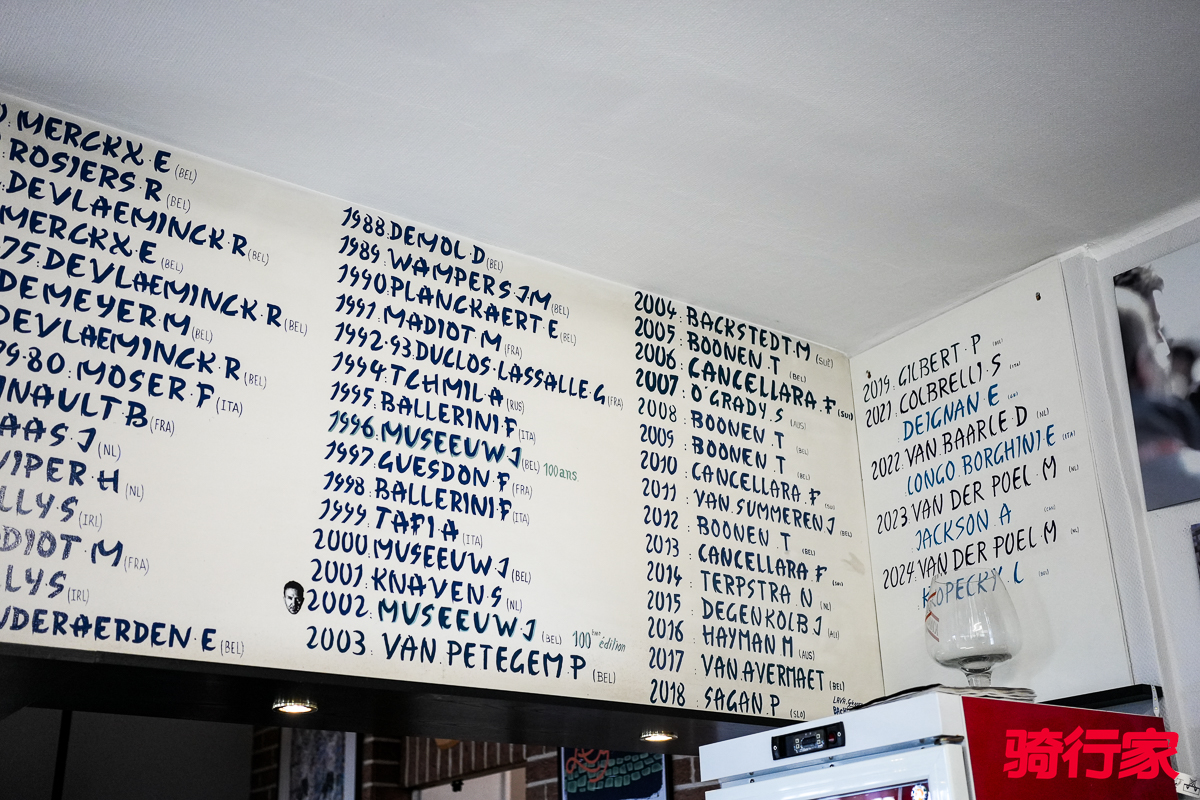 MERCKX.E (BEL)
ROSIERS.R (BEL)
DEVLAEMINCK.R (BEL)
MERCKX.E (BEL)
75:DEVLAEMINCK.R (BEL)
DEMEYER.M (BEL)
DEVLAEMINCK.R (BEL)
79.80.MOSER.F (ITA)
INAULT.B (FRA)
AAS.J (NL)
UIPER.H (NL)
LLYS (IRL)
DIOT.M (FRA)
LLYS (IRL)
NDERAERDEN.E (BEL)
1988.DEMOL.D (BEL)
1989.WAMPERS.J.M (BEL)
1990.PLANCKAERT.E (BEL)
1991.MADIOT.M (FRA)
1992.93.DUCLOS.LASSALLE.G (FRA)
1994.TCHMIL.A (RUS)
1995.BALLERINI.F (ITA)
1996.MUSEEUW.J (BEL) 100 ans
1997.GUESDON.F (FRA)
1998.BALLERINI.F (ITA)
1999.TAFI.A (ITA)
2000.MUSEEUW.J (BEL)
2001.KNAVEN.S (NL)
2002.MUSEEUW.J (BEL) 100ème édition
2003.VAN.PETEGEM.P (BEL)
2004.BACKSTEDT.M (SUE)
2005.BOONEN.T (BEL)
2006.CANCELLARA.F (SUI)
2007.O'GRADY.S (AUS)
2008.BOONEN.T (BEL)
2009.BOONEN.T (BEL)
2010.CANCELLARA.F
2011.VAN.SUMMEREN.J (BEL)
2012.BOONEN.T (BEL)
2013.CANCELLARA.F
2014.TERPSTRA.N (NL)
2015.DEGENKOLB.J (ALL)
2016.HAYMAN.M (AUS)
2017.VAN.AVERMAET (BEL)
2018.SAGAN.P (SLO)
2019.GILBERT.P
2021.COLBRELLI.S
DEIGNAN.E
2022.VAN BAARLE.D (NL)
LONGO BORGHINI.E (ITA)
2023.VAN DER POEL.M (NL)
JACKSON.A
2024.VAN DER POEL.M (NL)
KOPECKY.L
骑行家